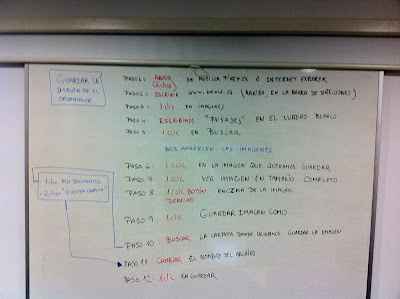 GUARDAR LA
IMAGEN EN EL
ORDENADOR
PASO 1: ABRIR EN MOZILLA FIREFOX O INTERNET EXPLORER
(2 clics)
PASO 2: ESCRIBIR www.google.es (ARRIBA, EN LA BARRA DE DIRECCIONES)
PASO 3: 1 clic EN IMÁGENES
PASO 4: ESCRIBIMOS "PAISAJES" EN EL CUADRO BLANCO
PASO 5: 1 CLIC EN BUSCAR
NOS APARECEN LAS IMÁGENES
PASO 6: 1 CLIC EN LA IMAGEN QUE QUERAMOS GUARDAR
PASO 7 1 CLIC VER IMAGEN EN TAMAÑO COMPLETO
PASO 8 1 CLIC BOTÓN ENCIMA DE LA IMAGEN
DERECHO
PASO 9: 1 clic GUARDAR IMAGEN COMO
- 1 clic MIS DOCUMENTOS
- 2 clics
PASO 10: BUSCAR LA CARPETA DONDE QUERAMOS GUARDAR LA IMAGEN
PASO 11: CAMBIAR EL NOMBRE DEL ARCHIVO
PASO 12: 1 clic EN GUARDAR